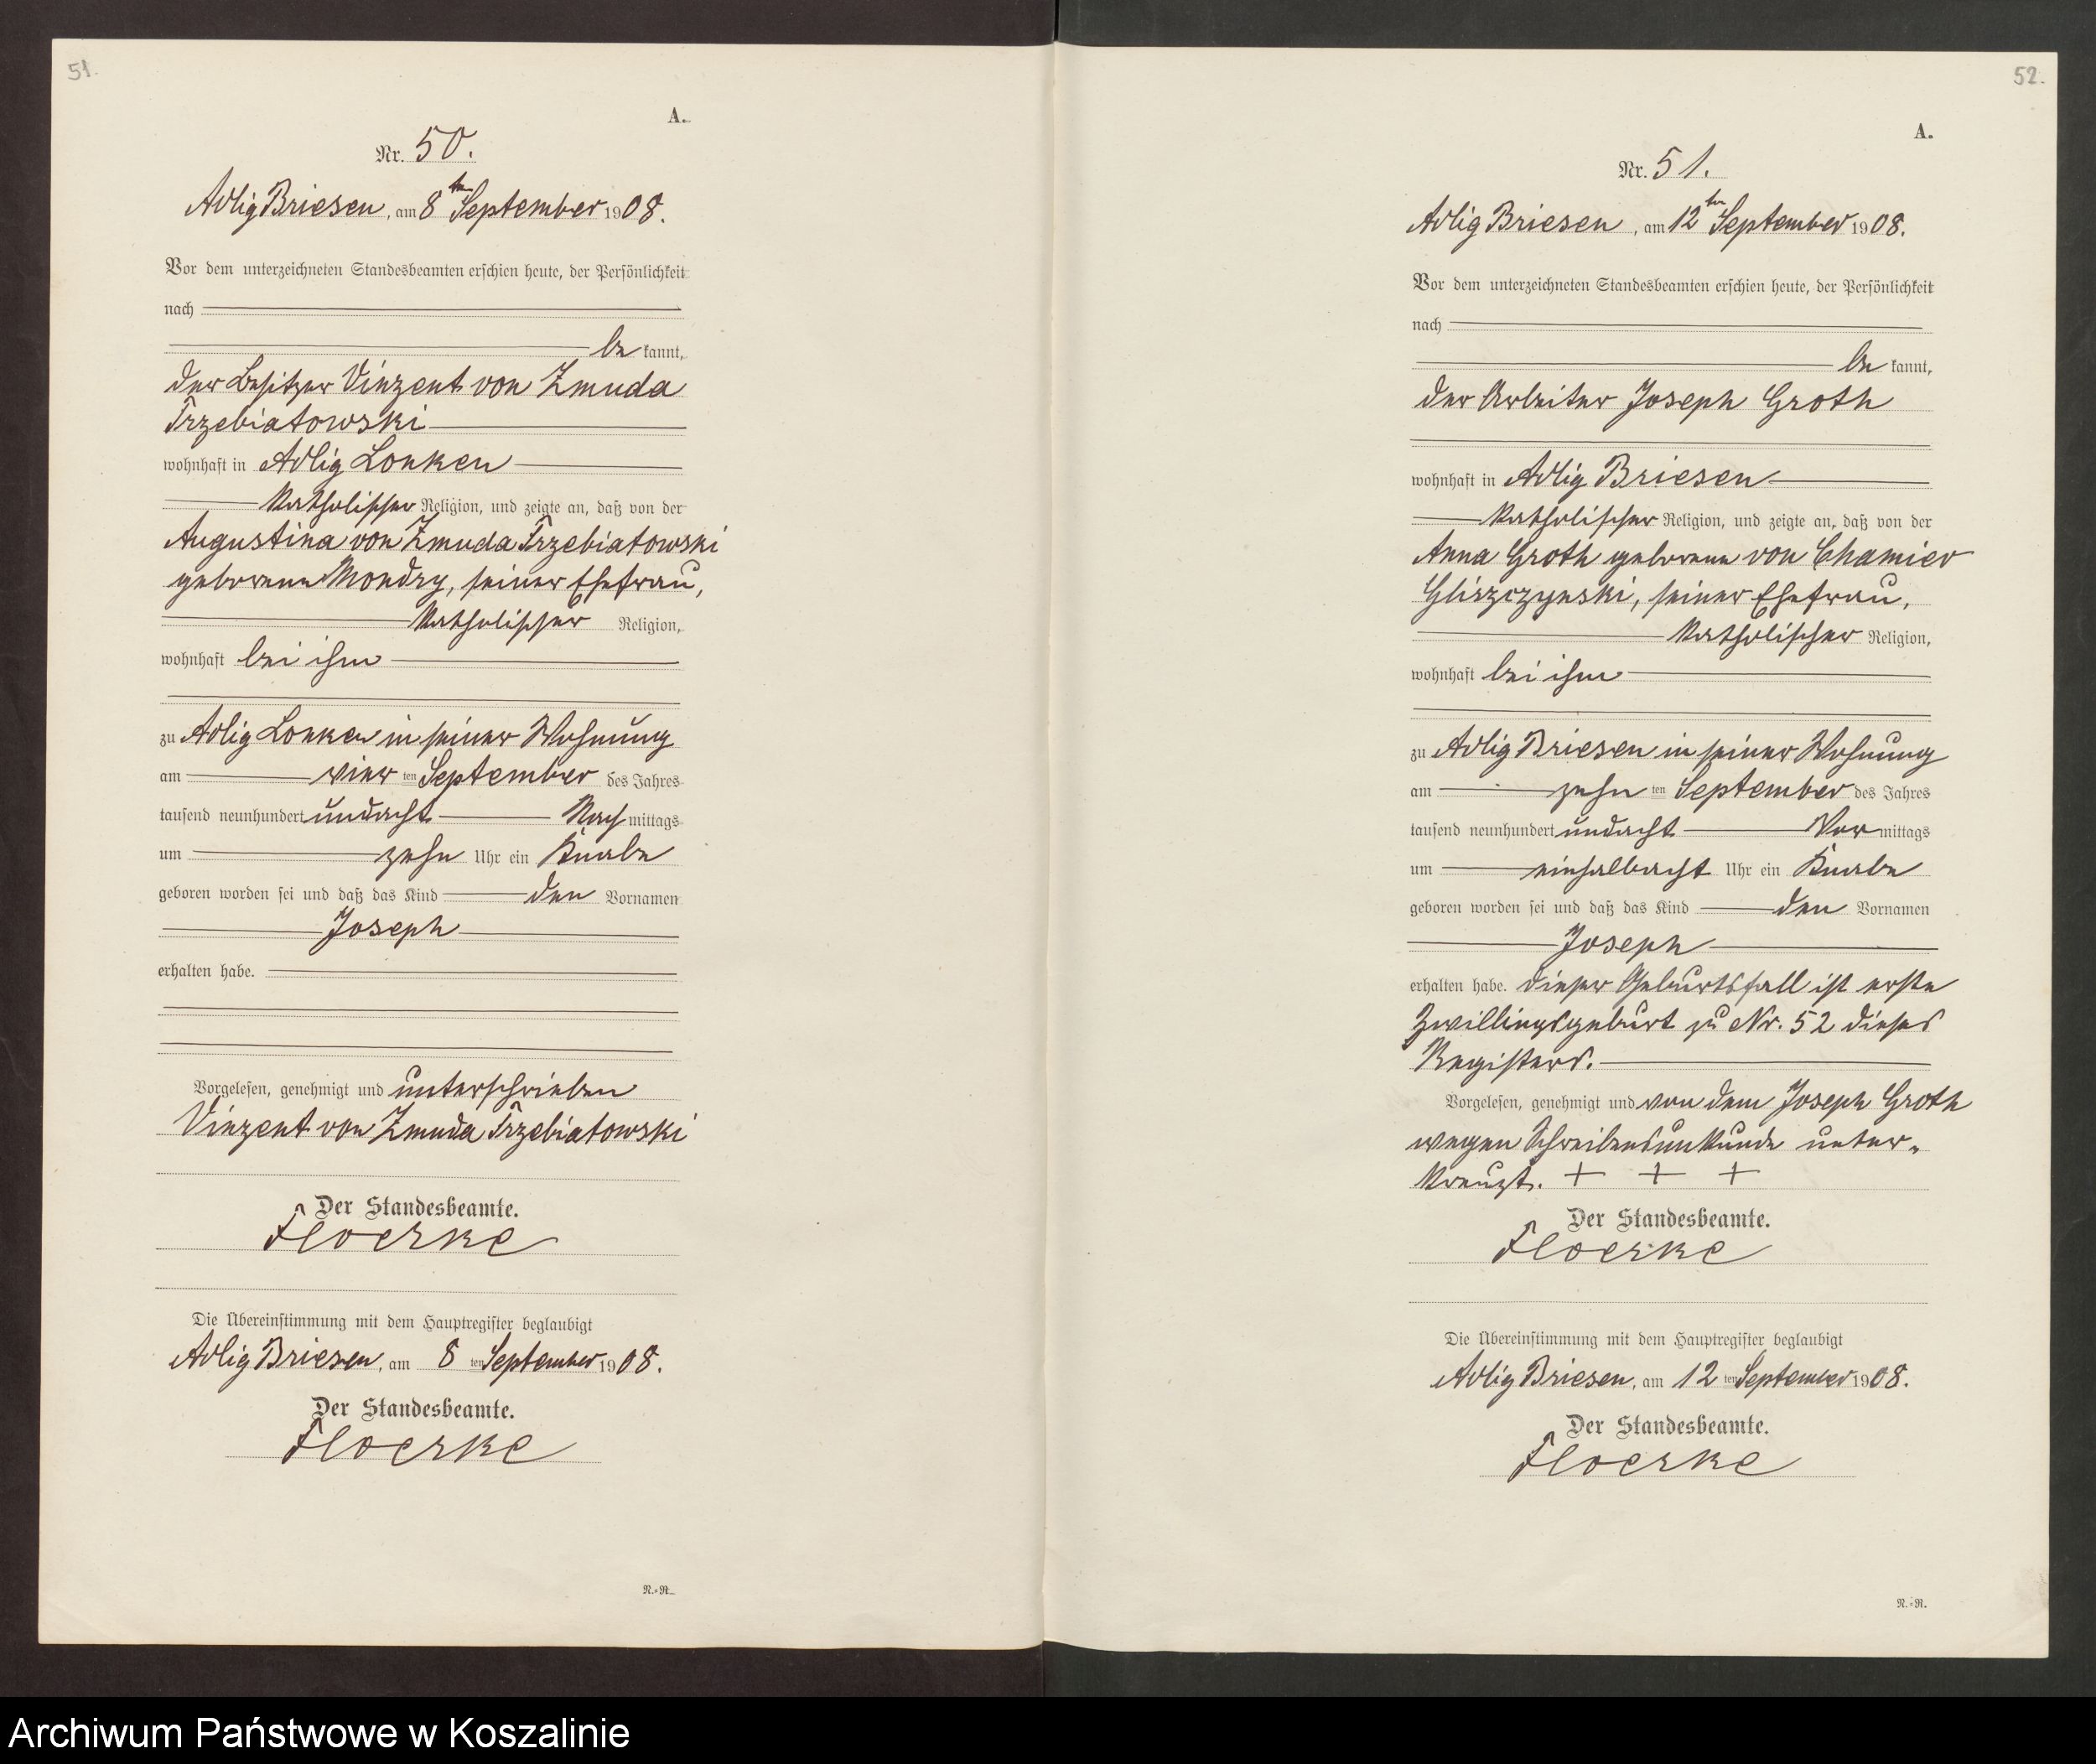 51.
A.
Nr. 50.
Adlig Briesen, am 8ten September 1908.
Vor dem unterzeichneten Standesbeamten erschien heute, der Persönlichkeit
nach
be kannt,
der Besitzer Vinzent von Zmuda
Trzebiatowski
wohnhaft in Adlig Lonken
katholischer Religion, und zeigte an, daß von der
Augustina von Zmuda Trzebiatowski
geborene Mondry, seiner Ehefrau,
katholischer Religion,
wohnhaft bei ihm
zu Adlig Lonken in seiner Wohnung
am vier ten September des Jahres
tausend neunhundert undacht Nach mittags
um zehn Uhr ein Knabe
geboren worden sei und daß das Kind den Vornamen
Joseph
erhalten habe.
Vorgelesen, genehmigt und unterschrieben
Vinzent von Zmuda Trzebiatowski
Der Standesbeamte.
Floerke
Die Übereinstimmung mit dem Hauptregister beglaubigt
Adlig Briesen, am 8 ten September 1908.
Der Standesbeamte.
Floerke
N.=R.
52.
A.
Nr. 51.
Adlig Briesen, am 12ten September 1908.
Vor dem unterzeichneten Standesbeamten erschien heute, der Persönlichkeit
nach
be kannt,
der Arbeiter Joseph Groth
wohnhaft in Adlig Briesen
katholischer Religion, und zeigte an, daß von der
Anna Groth geborene von Chamier
Gliszczynski, seiner Ehefrau,
katholischer Religion,
wohnhaft bei ihm
zu Adlig Briesen in seiner Wohnung
am zehn ten September des Jahres
tausend neunhundert undacht Vor mittags
um einhalbacht Uhr ein Knabe
geboren worden sei und daß das Kind den Vornamen
Joseph
erhalten habe. Dieser Geburtsfall ist erste
Zwillingsgeburt zu Nr. 52 dieses
Registers.
Vorgelesen, genehmigt und von dem Joseph Groth
wegen Schreibensunkunde unter-
kreuzt. + + +
Der Standesbeamte.
Floerke
Die Übereinstimmung mit dem Hauptregister beglaubigt
Adlig Briesen, am 12 ten September 1908.
Der Standesbeamte.
Floerke
N.=R.
Archiwum Państwowe w Koszalinie